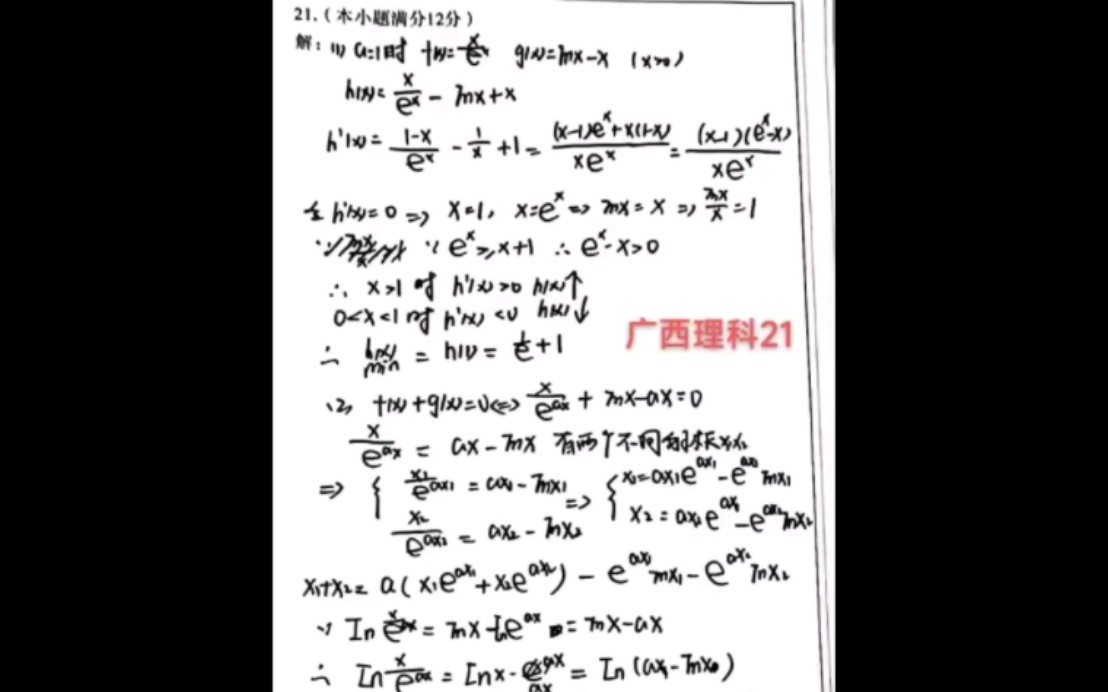 21.(本小题满分12分)
解:(1) a=1时 f(x)=x/e^x g(x)=lnx-x (x>0)
h(x)=x/e^x - lnx+x
h'(x)=(1-x)/e^x - 1/x +1=((x-1)e^x+x(1-x))/(xe^x)=((x-1)(e^x-x))/(xe^x)
令h'(x)=0 => x=1, x=e^x => lnx=x => lnx/x=1
∵ e^x≥x+1 ∴ e^x-x>0
∴ x>1时 h'(x)>0 h(x)↑
0<x<1时 h'(x)<0 h(x)↓
广西理科21
∴ h(x)min = h(1)= 1/e+1
(2) f(x)+g(x)=0<=> x/e^(ax) + lnx-ax=0
x/e^(ax) = ax-lnx 有两个不同的实根x1x2
=> { x1/e^(ax1) = ax1-lnx1 => { x1=ax1e^(ax1)-e^(ax1)lnx1
x2/e^(ax2) = ax2-lnx2 x2=ax2e^(ax2)-e^(ax2)lnx2
x1+x2= a(x1e^(ax1)+x2e^(ax2)) - e^(ax1)lnx1-e^(ax2)lnx2
∵ ln x/e^(ax) = lnx-lne^(ax) = lnx-ax
∴ ln x/e^(ax) = lnx- ax = ln(ax-lnx)